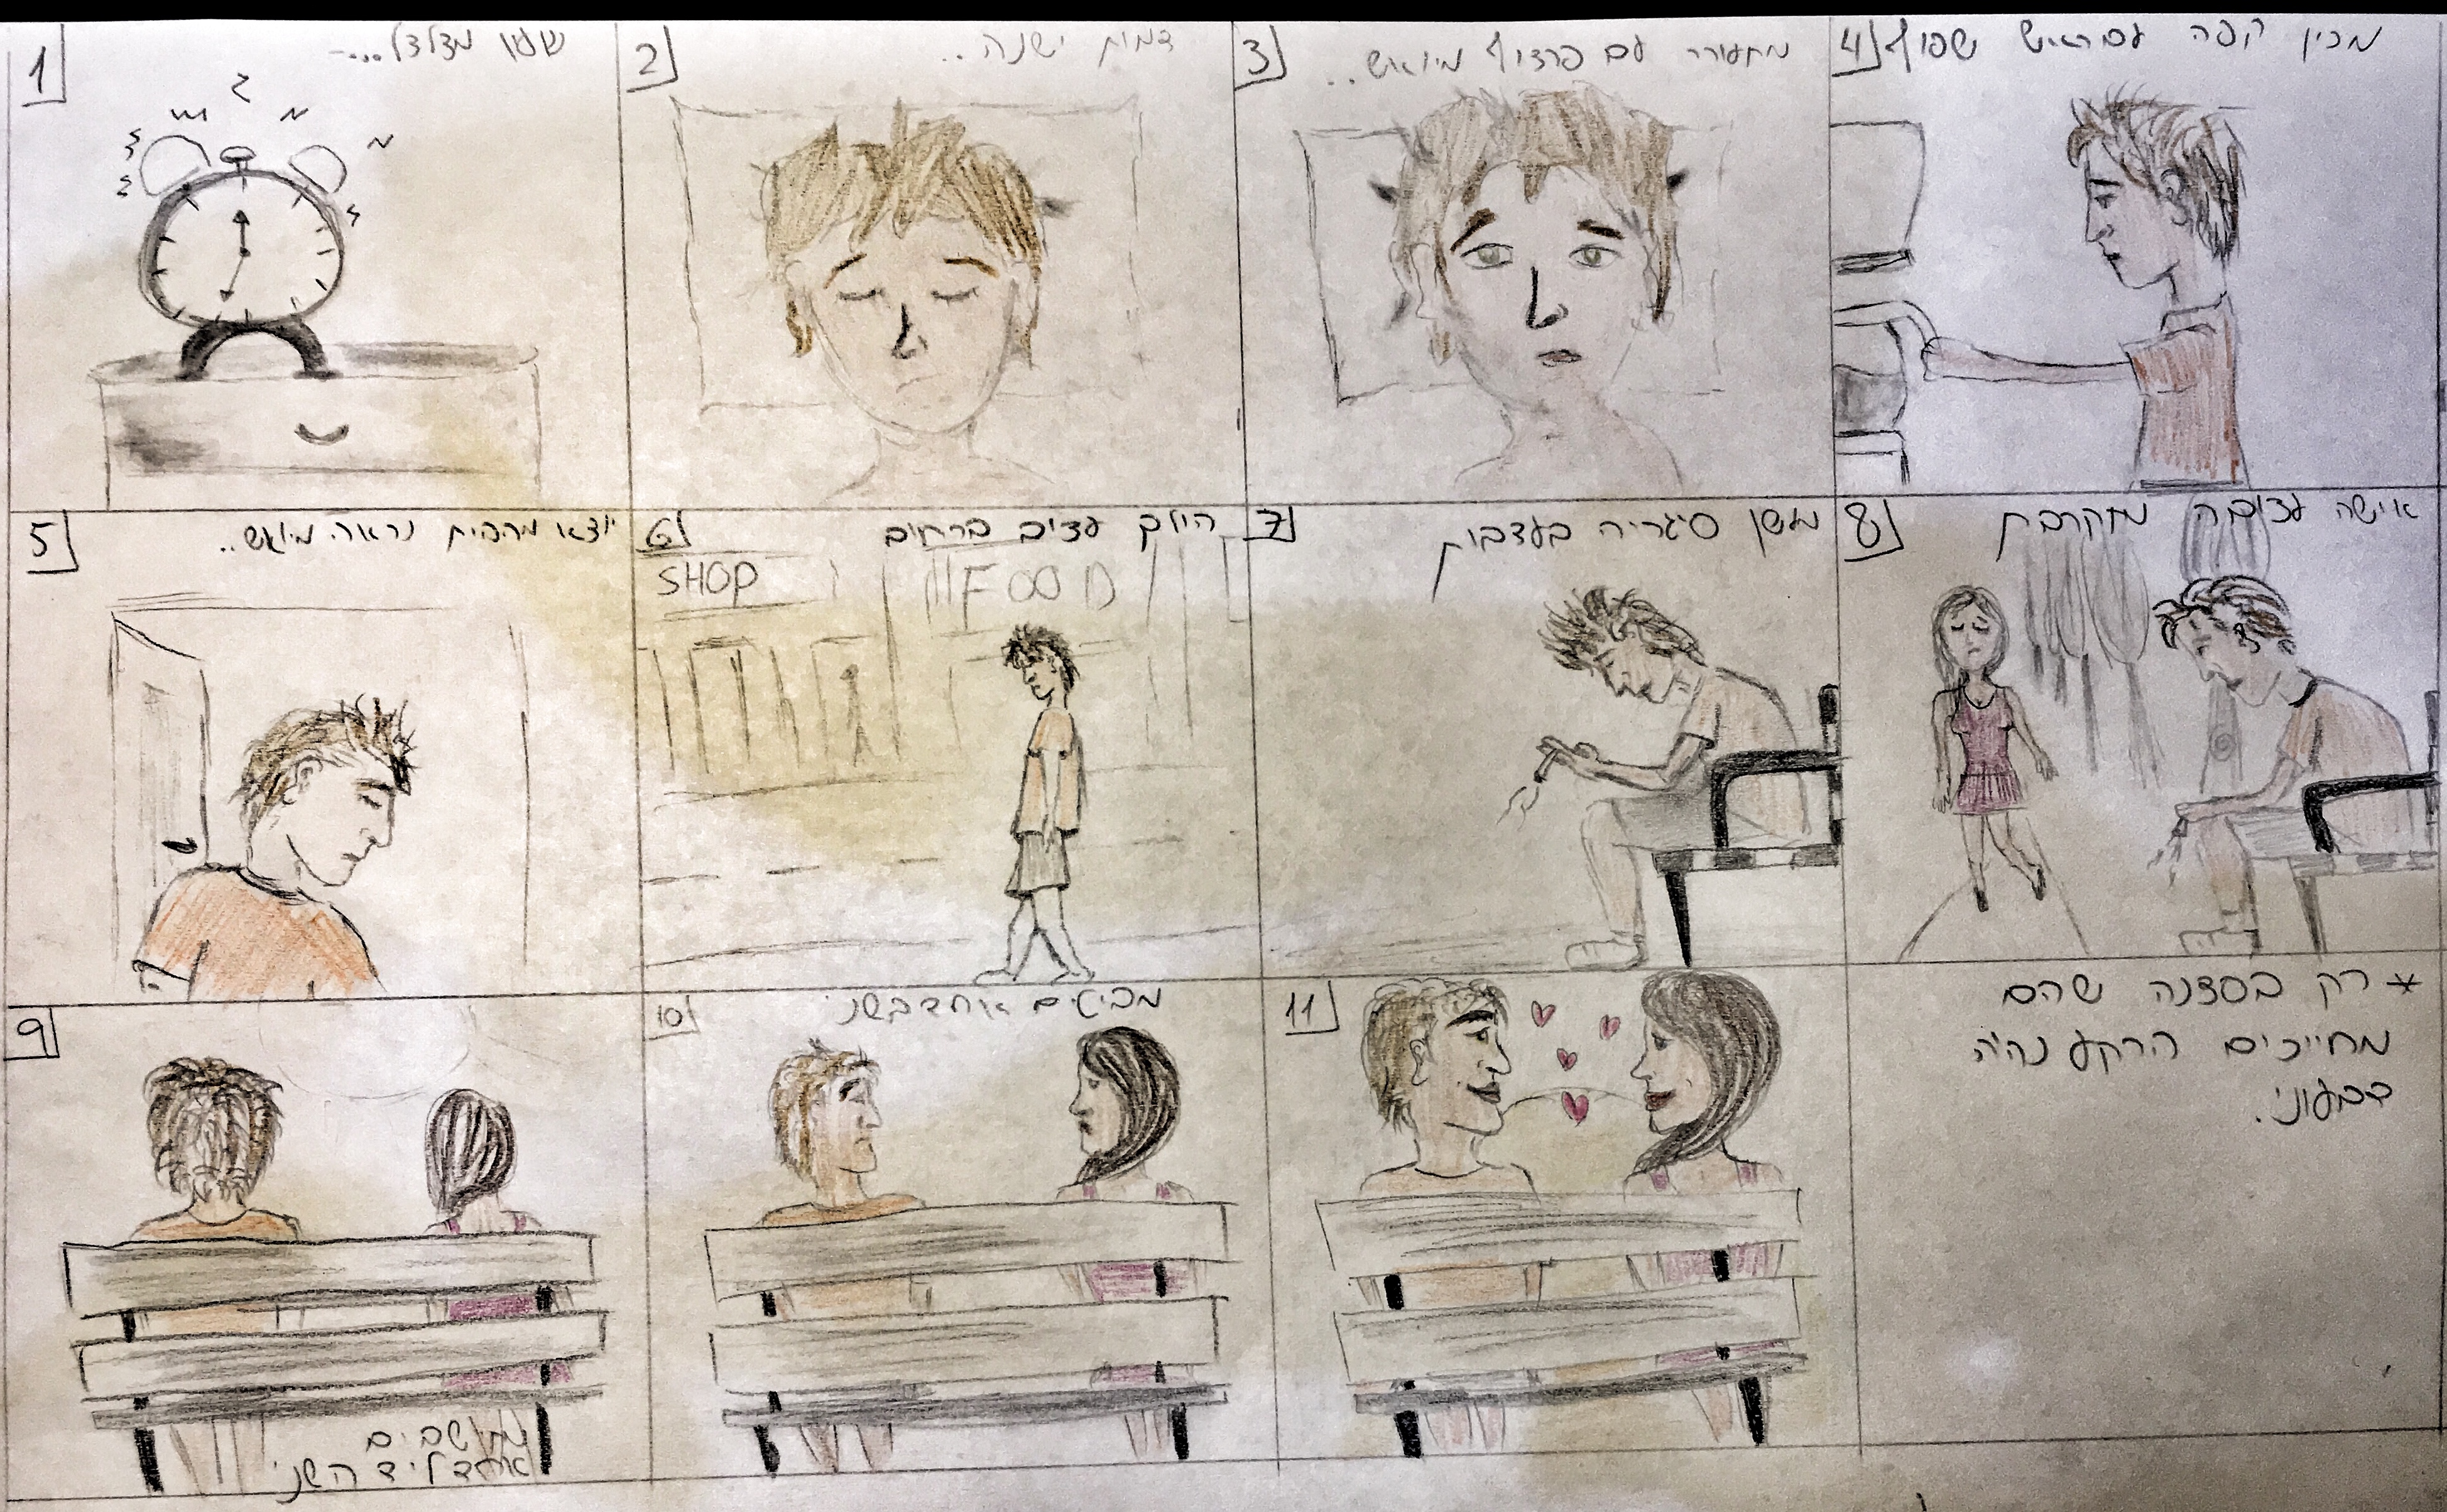 1
שעון מצלצל...
2
דמות ישנה..
3
מתעורר עם פרצוף מיואש..
4
מכין קפה עם ראש שפוף
5
יוצא מהבית נראה מיואש..
6
הולך עצוב ברחוב
SHOP
FOOD
7
מעשן סיגריה בעצבות
8
אישה עצובה מתקרבת
9
מתיישבים
אחד ליד השני
10
מביטים אחד בשני
11
* רק בסצנה שהם
מחייכים הרקע נהיה
צבעוני.